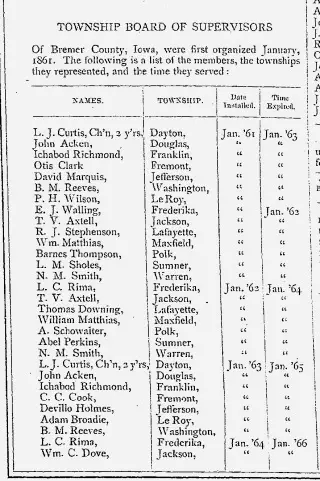 TOWNSHIP BOARD OF SUPERVISORS
Of Bremer County, Iowa, were first organized January,
1861. The following is a list of the members, the townships
they represented, and the time they served:
NAMES. TOWNSHIP. Date Installed. Time Expired.
L. J. Curtis, Ch'n, 2 y'rs, Dayton, Jan. '61 Jan. '63
John Acken, Douglas, " "
Ichabod Richmond, Franklin, " "
Otis Clark Fremont, " "
David Marquis, Jefferson, " "
B. M. Reeves, Washington, " "
P. H. Wilson, Le Roy, " "
E. J. Walling, Frederika, " Jan. '62
T. V. Axtell, Jackson, " "
R. J. Stephenson, Lafayette, " "
Wm. Matthias, Maxfield, " "
Barnes Thompson, Polk, " "
L. M. Sholes, Sumner, " "
N. M. Smith, Warren, " "
L. C. Rima, Frederika, Jan. '62 Jan. '64
T. V. Axtell, Jackson, " "
Thomas Downing, Lafayette, " "
William Matthias, Maxfield, " "
A. Schowaiter, Polk, " "
Abel Perkins, Sumner, " "
N. M. Smith, Warren, " "
L. J. Curtis, Ch'n, 2 y'rs, Dayton, Jan. '63 Jan. '65
John Acken, Douglas, " "
Ichabod Richmond, Franklin, " "
C. C. Cook, Fremont, " "
Devillo Holmes, Jefferson, " "
Adam Broadie, Le Roy, " "
B. M. Reeves, Washington, " "
L. C. Rima, Frederika, Jan. '64 Jan. '66
Wm. C. Dove, Jackson, " "